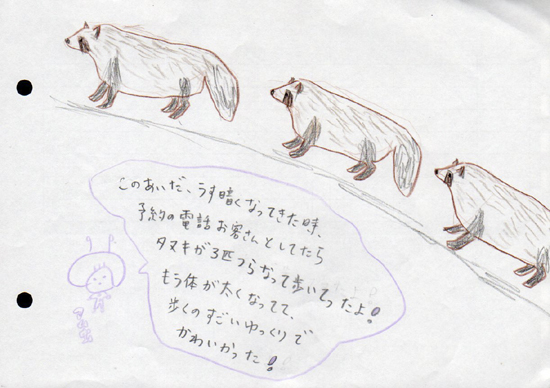 このあいだ、うす暗くなってきた時、
予約の電話お客さんとしてたら
タヌキが3匹つらなって歩いてったよ!
もう体が太くなってて、
歩くのすごいゆっくりで
かわいかった!